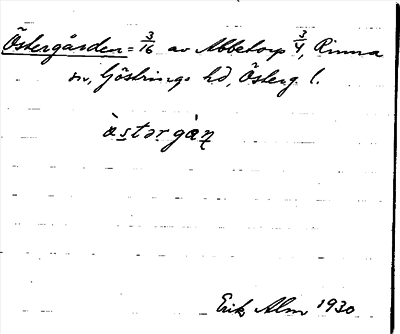 Östergården = 3/16 av Abbetorp 3/4, Rinna
sn, Göstrings hd, Österg l.
àstərgàɳ
Erik Alm 1930